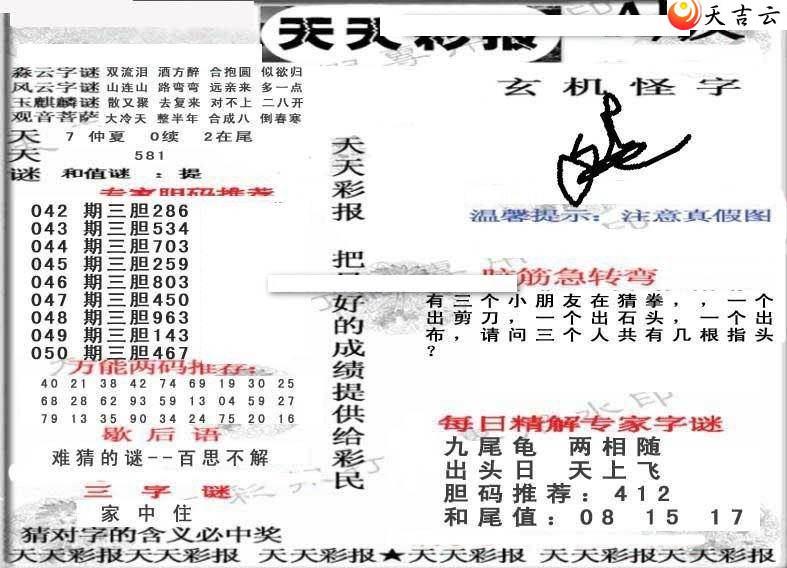 天天彩报
天吉云
淼云字谜 双流泪 酒方醉 合抱圆 似欲归
风云字谜 山连山 路弯弯 远亲来 多一点
玉麒麟谜 散又聚 去复来 对不上 二八开
观音菩萨 大冷天 整半年 合成八 倒春寒
天 7 仲夏 0续 2在尾
天 581
谜 和值谜 : 提
专家胆码推荐
042 期三胆286
043 期三胆534
044 期三胆703
045 期三胆259
046 期三胆803
047 期三胆450
048 期三胆963
049 期三胆143
050 期三胆467
万能两码推荐:
40 21 38 42 74 69 19 30 25
68 28 62 93 59 13 04 59 27
79 13 35 90 34 24 75 20 16
歇后语
难猜的谜--百思不解
三字谜
家中住
猜对字的含义必中奖
天天彩报 把最好的成绩提供给彩民
玄机怪字
温馨提示: 注意真假图
脑筋急转弯
有三个小朋友在猜拳,,一个
出剪刀,一个出石头,一个出
布,请问三个人共有几根指头
?
每日精解专家字谜
九尾龟 两相随
出头日 天上飞
胆码推荐:412
和尾值:08 15 17
天天彩报 天天彩报 天天彩报★天天彩报 天天彩报天天彩报